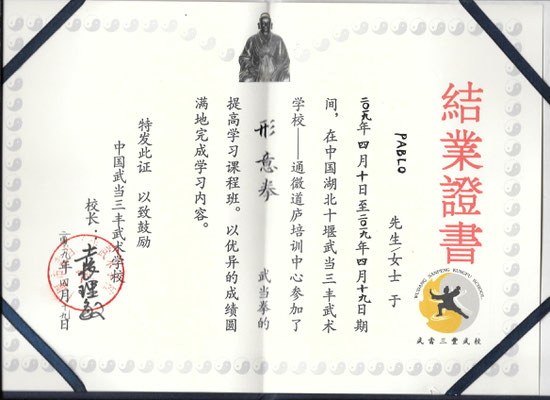 結業證書
WUDANG SANFENG KUNGFU SCHOOL
武當三豐武校
PABLO 先生/女士 于
二〇一九年四月十日至二〇一九年四月十九日期
间，在中国湖北十堰武当三丰武术
学校——通微道庐培训中心参加了
形意拳 武当拳的
提高学习课程班。以优异的成绩圆
满地完成学习内容。
特发此证 以致鼓励
中国武当三丰武术学校
校长：袁理敏
二〇一九年四月十九日